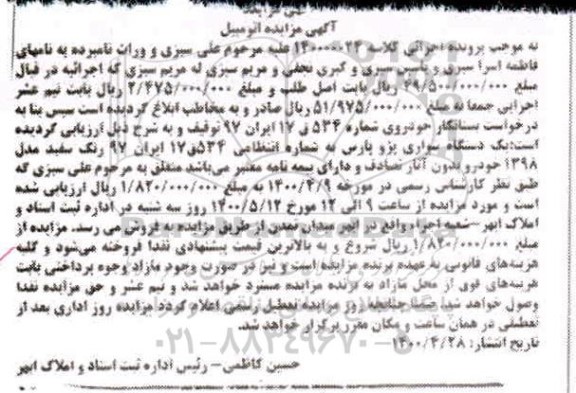 آگهی مزایده اتومبیل
به موجب پرونده اجرائی کلاسه ۱۴۰۰۰۰۰۲۴ علیه مرحوم علی سبزی و وراث نامبرده به نامهای
فاطمه اسرا سبزی و یاسین سبزی و کبری نجفی و مریم سبزی له مریم سبزی که اجرائیه در قبال
مبلغ ۴۹/۵۰۰/۰۰۰/۰۰۰ ریال بابت اصل طلب و مبلغ ۲/۴۷۵/۰۰۰/۰۰۰ ریال بابت نیم عشر
اجرایی جمعا به مبلغ ۵۱/۹۷۵/۰۰۰/۰۰۰ ریال صادر و به مخاطب ابلاغ گردیده است سپس بنا به
درخواست بستانکار خودروی شماره ۵۳۴ ق ۱۷ ایران ۹۷ توقیف و به شرح ذیل ارزیابی گردیده
است:یک دستگاه سواری پژو پارس به شماره انتظامی ۵۳۴ق۱۷ ایران ۹۷ رنگ سفید مدل
۱۳۹۸ خودرو بدون آثار تصادف و دارای بیمه نامه معتبر می‌باشد متعلق به مرحوم علی سبزی که
طبق نظر کارشناس رسمی در مورخه ۱۴۰۰/۴/۹ به مبلغ ۱/۸۲۰/۰۰۰/۰۰۰ ریال ارزیابی شده
است و مورد مزایده از ساعت ۹ الی ۱۲ مورخ ۱۴۰۰/۵/۱۲ روز سه شنبه در اداره ثبت اسناد و
املاک ابهر –شعبه اجراء واقع در ابهر میدان تمدن از طریق مزایده به فروش می رسد. مزایده از
مبلغ ۱/۸۲۰/۰۰۰/۰۰۰ ریال شروع و به بالاترین قیمت پیشنهادی نقدا فروخته می‌شود و کلیه
هزینه‌های قانونی به عهده برنده مزایده است و نیز در صورت وجود مازاد وجوه پرداختی بابت
هزینه‌های فوق از محل مازاد به برنده مزایده مسترد خواهد شد و نیم عشر و حق مزایده نقدا
وصول خواهد شد.ضمنا چنانچه روز مزایده تعطیل رسمی اعلام گردد مزایده روز اداری بعد از
تعطیلی در همان ساعت و مکان مقرر برگزار خواهد شد.
تاریخ انتشار: ۱۴۰۰/۴/۲۸
۰۲۱-۸۸۳۴۹۶۷۰-۵
حسین کاظمی– رئیس اداره ثبت اسناد و املاک ابهر